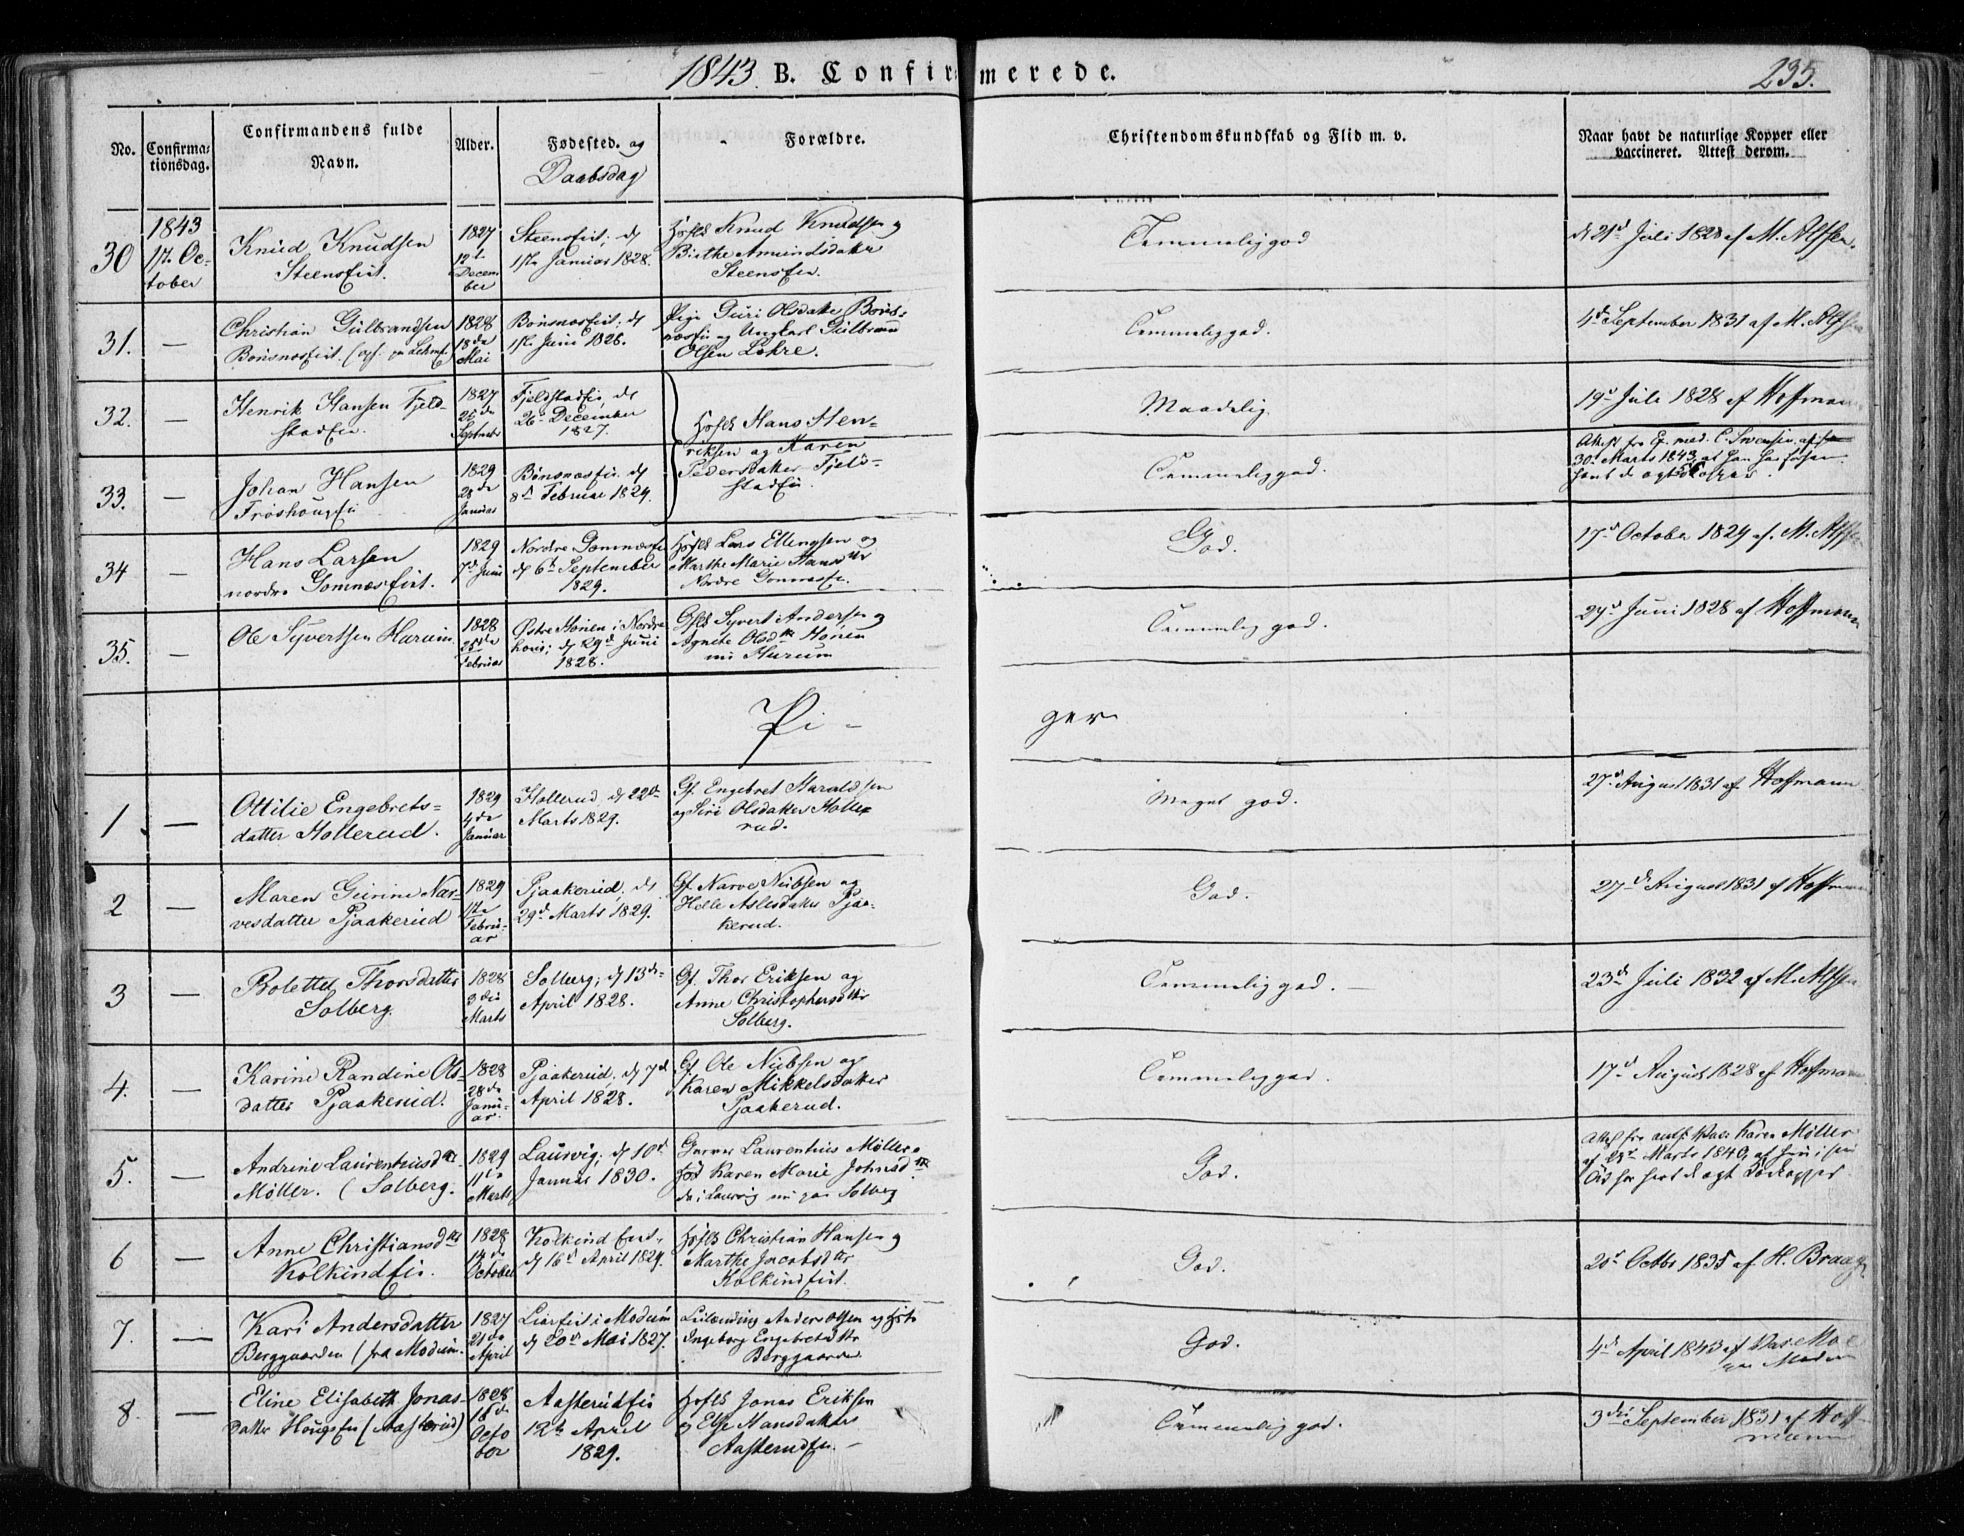 1843 B. Confirmerede. 235.
No. Confirmationsdag. Confirmandens fulde Navn. Alder. Fødested. og Daabsdag Forældre. Christendomskundskab og Flid m. v. Naar havt de naturlige Kopper eller vaccineret. Attest derom.
30 1843 1ste October
Knud Knudsen
Steensfiel.
1827 12te December
Steensfiel, d
1ste Januar 1828.
Hosfdr Knud Knudsen og
Birthe Amundsdatter
Steensfie.
Temmelig god
d 21d Juli 1828 af M. Alfsen.
31. —
Christian Gulbrandsen
1828 18de Mai
1ste Juni 1828.
Pige Guri Olsdatter
og Ungkarl Gulbrand
Olsen Lohre.
Temmelig god.
4d September 1831 af M. Alfsen
32. —
Henrik Hansen Fjeld-
stadfie.
1827 25de September
Fjeldstadfie, de
26de December
1827.
Hans Hen-
riksen og Karen
Pedersdatter Fjeld-
stadfie.
Maadelig.
19d Juli 1828 af Hoffmann
33. —
Johan Hansen
Frøshougfie
1829 28de Januar
Bønsnæsfie d
8de Februar 1829.
Temmelig god.
Attest fra
30d Marts 1843, at han har
havt de
34 —
Hans Larsen
nordre Gomnæsfiel.
1829 7de Juni
Nordre Gomnæsfie
d 6te September
1829.
Lars Ellingsen og
Marthe Marie Hansdtr
Nordre Gomnæsfie.
God.
17d October 1829 af M. Alfsen
35. —
Ole Syvertsen Hurum
1828 25de Februar
Østre Hønen i Nordre-
houg; d 29d Juni
1828.
Syvert Andersen og
Agnethe Olsdtr Hønen
nu Hurum
Temmelig god.
29d Juni 1828 af Hoffmann
Pi- ger
1. —
Ottilie Engebrets-
datter Hollerud.
1829 4de Januar
Hollerud, d 22de
Marts 1829.
Gf. Engebret Haraldsen
og Siri Olsdatter Holle-
rud.
Meget god.
27d August 1831 af Hoffmann
2 —
Maren Gurine Nar-
vesdatter Pjaakerud
1829 1ste Februar
Pjaakerud, d
29d Marts 1829.
Gf. Narve Nubsen og
Helle Aslesdatter Pjaa-
kerud.
God.
27de August 1831 af Hoffmann
3 —
Bolette Thorsdatter
Solberg.
1828 3die Marts
Solberg; d 13de
April 1828.
Gf. Thor Eriksen og
Anne Christophersdtr
Solberg.
Temmelig god. —
23de Juli 1832 af M. Alfsen
4. —
Karine Randine Ols-
datter Pjaakerud.
1828 28de Januar.
Pjaakerud, d 7d
April 1828.
Gf. Ole Nubsen og
Karen Mikkelsdatter
Pjaakerud.
Temmelig god.
17d August 1828 af Hoffmann
5. —
Andrine Laurentiusdtr
Møller. (Solberg.
1829 11te Marts
Laurvig; d 10d
Januar 1830.
Laurentius Møller
Karen Marie Johnsdtr
Solberg
God.
Attest fra Karen Møller
af 28d Marts 1840, at hun i sin
6 —
Anne Christiansdtr
Kolkindfie.
1828 14de October
d 16d April 1829.
Christian Hansen og
Marthe Jacobsdtr
Kolkindfiel.
God.
20d Octbr 1835 af H. Braag
7. —
Kari Andersdatter
Berggaarden (fra Modum.
1827 21de April
Lierfiel i Modum
d 20d Mai 1827.
Anders Olsen og
Ingeborg Engebretsdtr
Berggaarden
God.
4d April 1843 af Moe
8. —
Eline Elisabeth Jonas-
datter Hougsfie (Aasterud)
1828 18de October
Aasterudfie
12te April
1829.
Jonas Eriksen
og Else Hansdatter
Aasterudfie. —
Temmelig god.
3die September 1831 af Hoff-
mann